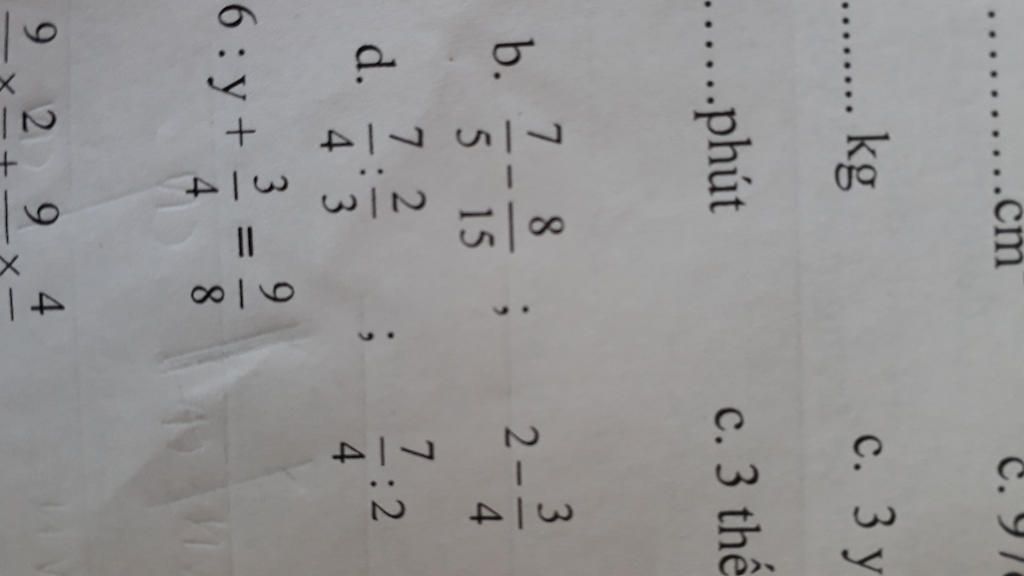 ..........cm c. 9
......... kg c. 3 y
......phút c. 3 thế
b. 7/5 - 8/15 ; 2 - 3/4
d. 7/4 : 2/3 ; 7/4 : 2
6 : y + 3/4 = 9/8
9 × 2 + 9 × 4